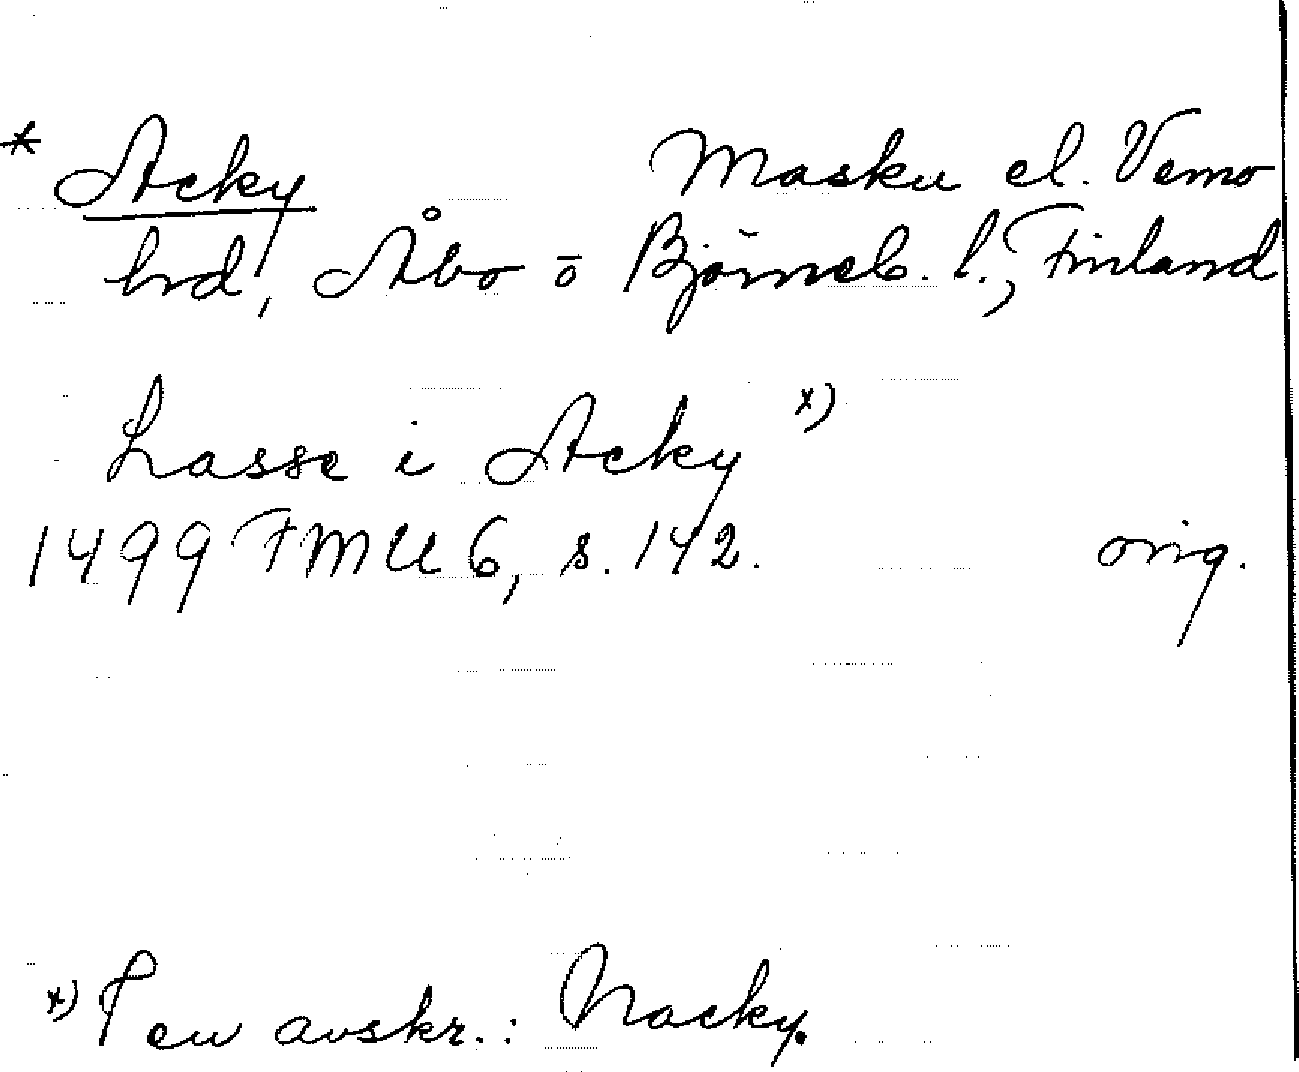 * Acky Masku el. Vemo
hrd, Åbo o Björneb. l., Finland
Lasse i Acky x)
1499 FMU 6, s. 142. orig.
x) I en avskr.: Nacky.